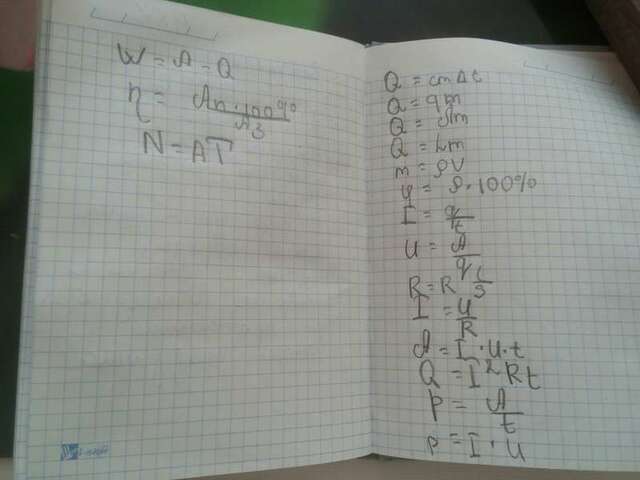 W = A - Q
η = Aп · 100% / Aз
N = AT
Q = cm Δt
Q = qm
Q = λm
Q = Lm
m = ρV
φ = ρ · 100%
I = q/t
U = A/q
R = R l/s
I = U/R
A = I · U · t
Q = I² R t
P = A/t
P = I · U